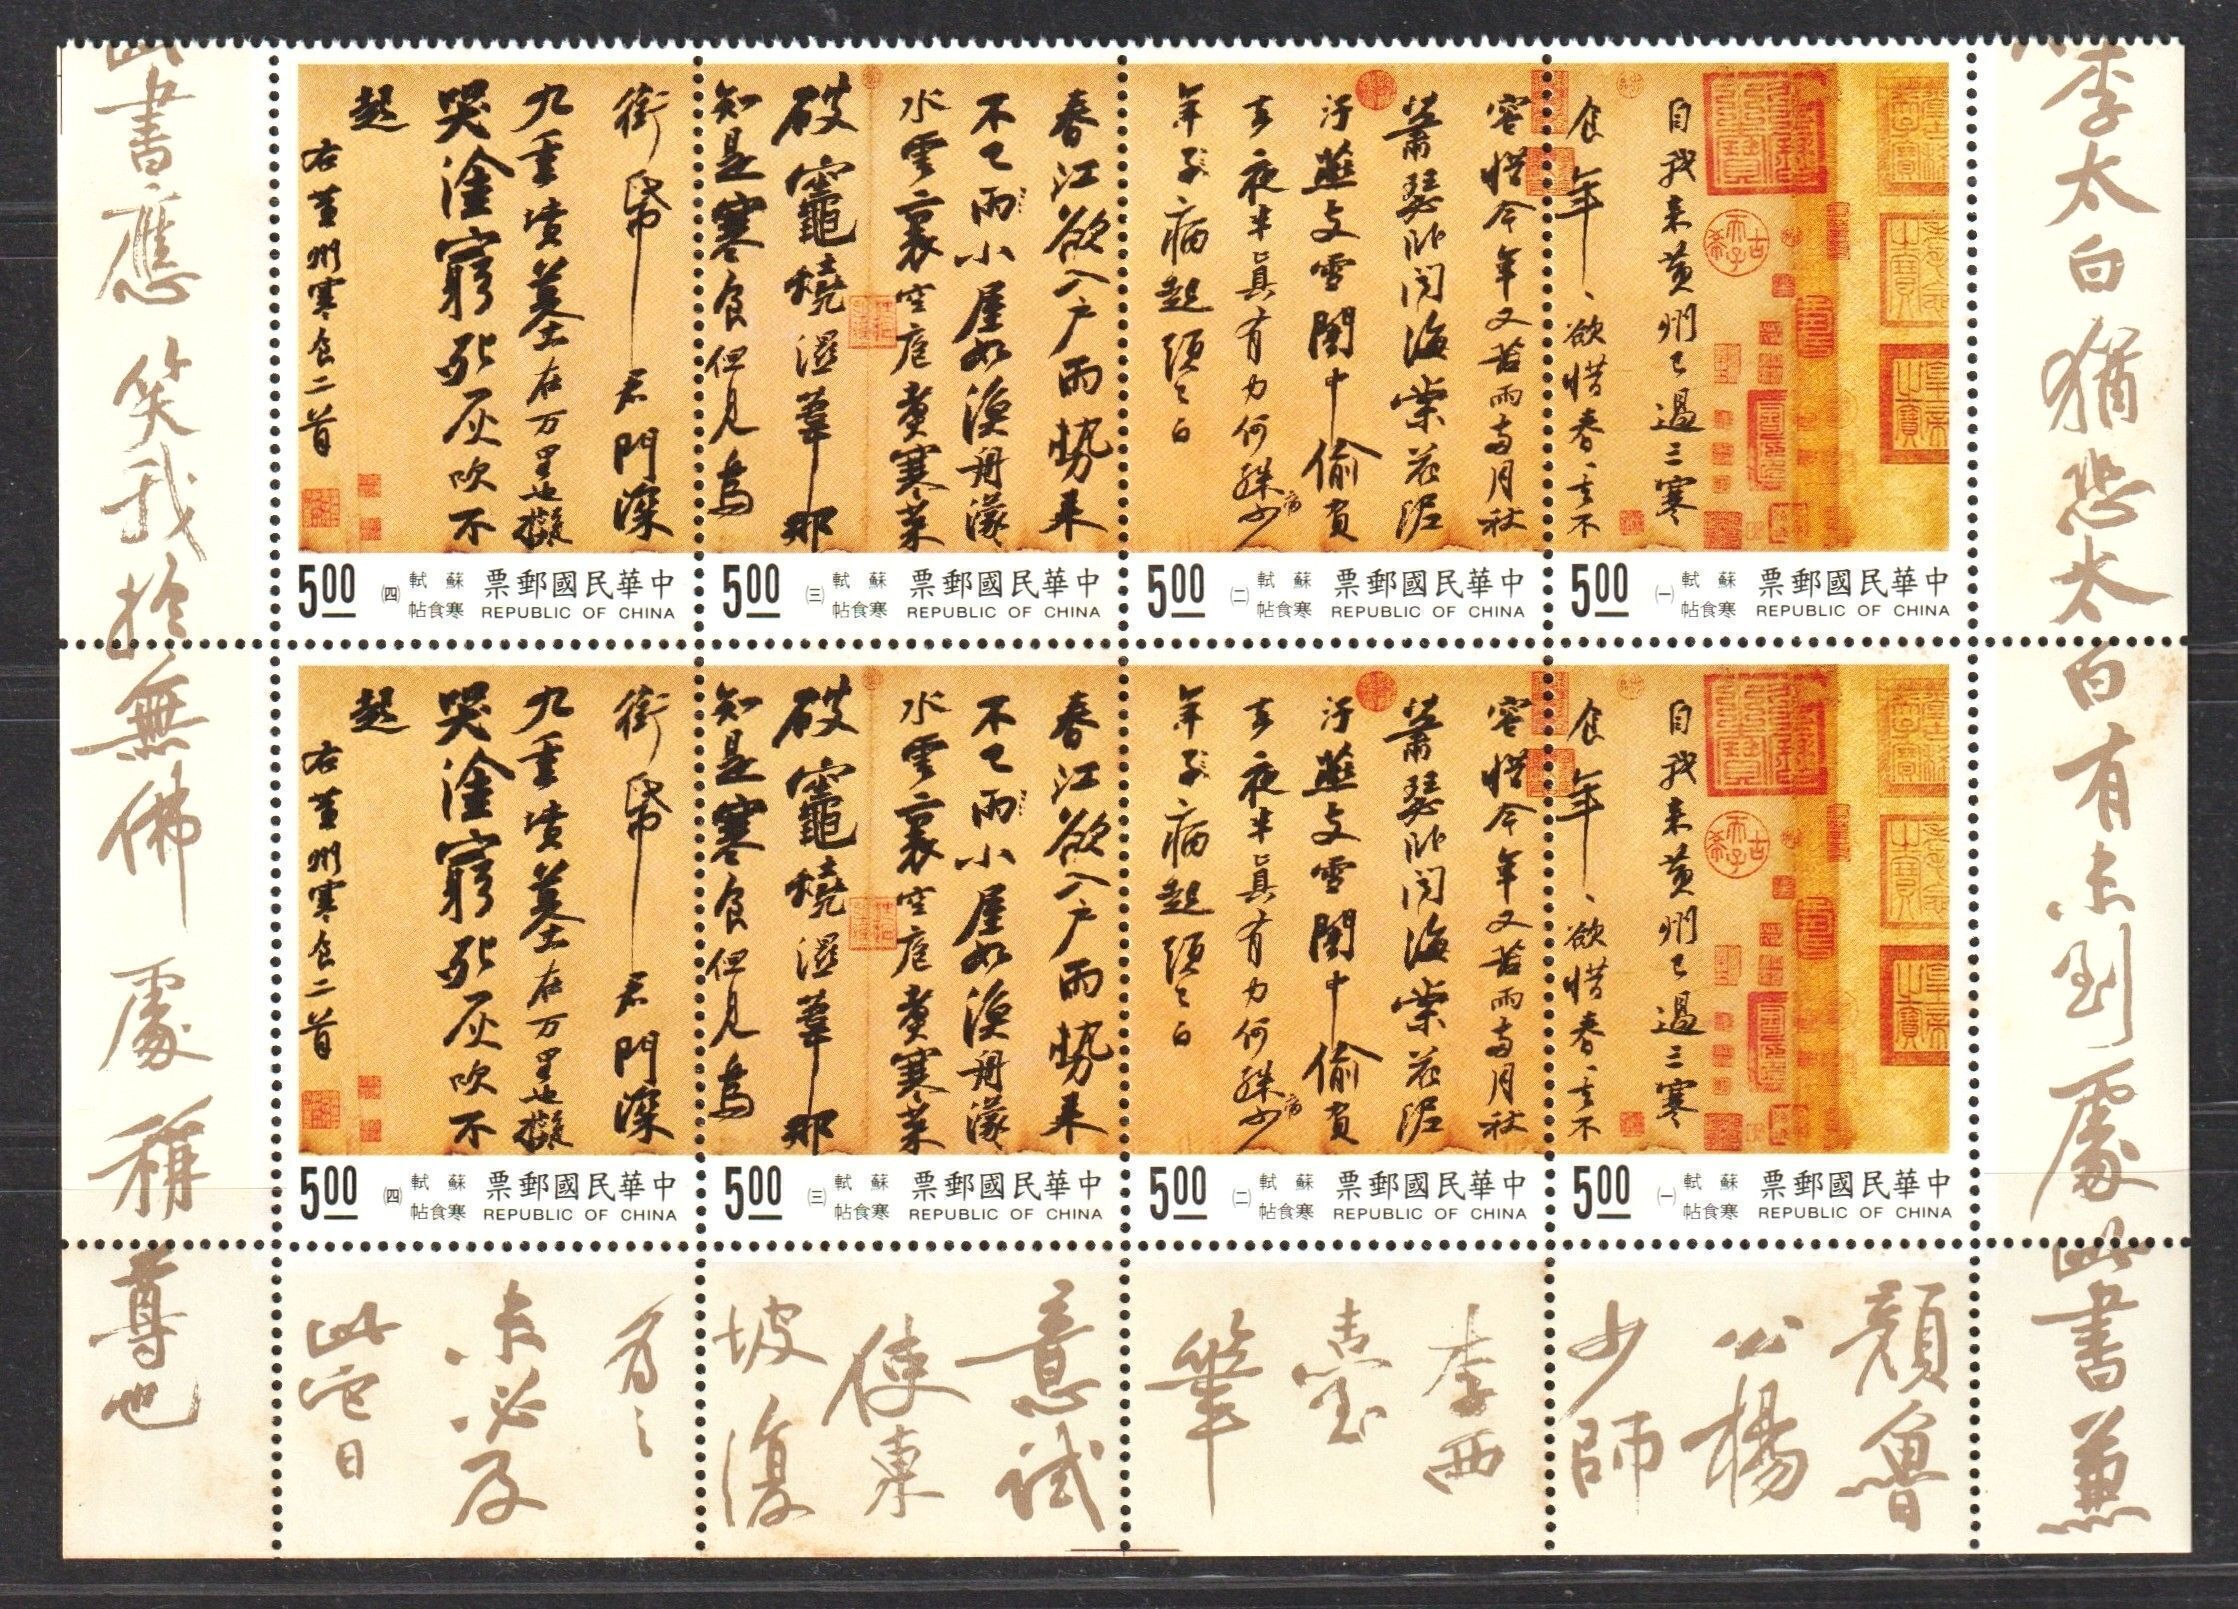 李太白猶恐太白有未到處此書兼
自我来黄州已過三寒
食年、欲惜春、去不
容惜今年又苦雨兩月秋
蕭瑟卧聞海棠花泥
汙燕支雪闇中偷負
去夜半真有力何殊少
年子病起頭已白
春江欲入户雨勢来
不已雨小屋如漁舟濛
水雲裏空庖煮寒菜
破竈燒濕葦那
知是寒食但見烏
銜帋君門深
九重墳墓在万里也擬
哭塗窮死灰吹不
起
右黄州寒食二首
古希天子
中華民國郵票
REPUBLIC OF CHINA
蘇軾
寒食帖
㈠
5.00
中華民國郵票
REPUBLIC OF CHINA
蘇軾
寒食帖
㈡
5.00
中華民國郵票
REPUBLIC OF CHINA
蘇軾
寒食帖
㈢
5.00
中華民國郵票
REPUBLIC OF CHINA
蘇軾
寒食帖
㈣
5.00
自我来黄州已過三寒
食年、欲惜春、去不
容惜今年又苦雨兩月秋
蕭瑟卧聞海棠花泥
汙燕支雪闇中偷負
去夜半真有力何殊少
年子病起頭已白
春江欲入户雨勢来
不已雨小屋如漁舟濛
水雲裏空庖煮寒菜
破竈燒濕葦那
知是寒食但見烏
銜帋君門深
九重墳墓在万里也擬
哭塗窮死灰吹不
起
右黄州寒食二首
古希天子
中華民國郵票
REPUBLIC OF CHINA
蘇軾
寒食帖
㈠
5.00
中華民國郵票
REPUBLIC OF CHINA
蘇軾
寒食帖
㈡
5.00
中華民國郵票
REPUBLIC OF CHINA
蘇軾
寒食帖
㈢
5.00
中華民國郵票
REPUBLIC OF CHINA
蘇軾
寒食帖
㈣
5.00
顏魯
公楊
少師
李西
臺
筆
意試
使東
坡復
為之
未必及
此它日
此書應笑我於無佛處稱尊也